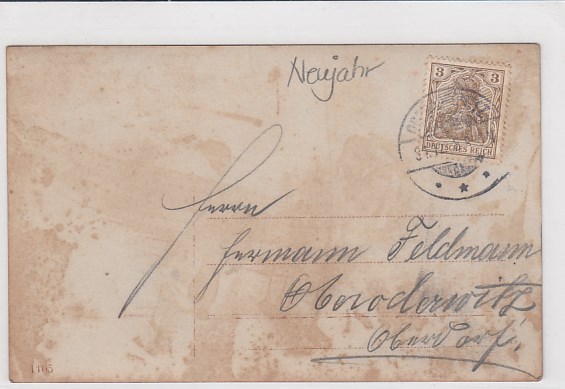 Neujahr
3 3
DEUTSCHES REICH
Herrn
Hermann Feldmann
Oberoderwitz
Oberdorf.
1105